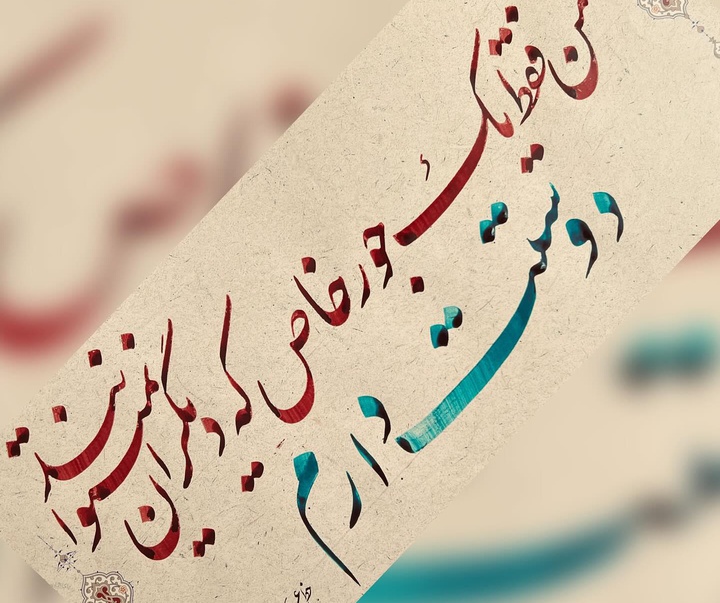 من فقط یک جور خاص که دیگران نمیتوانستند
دوستت دارم